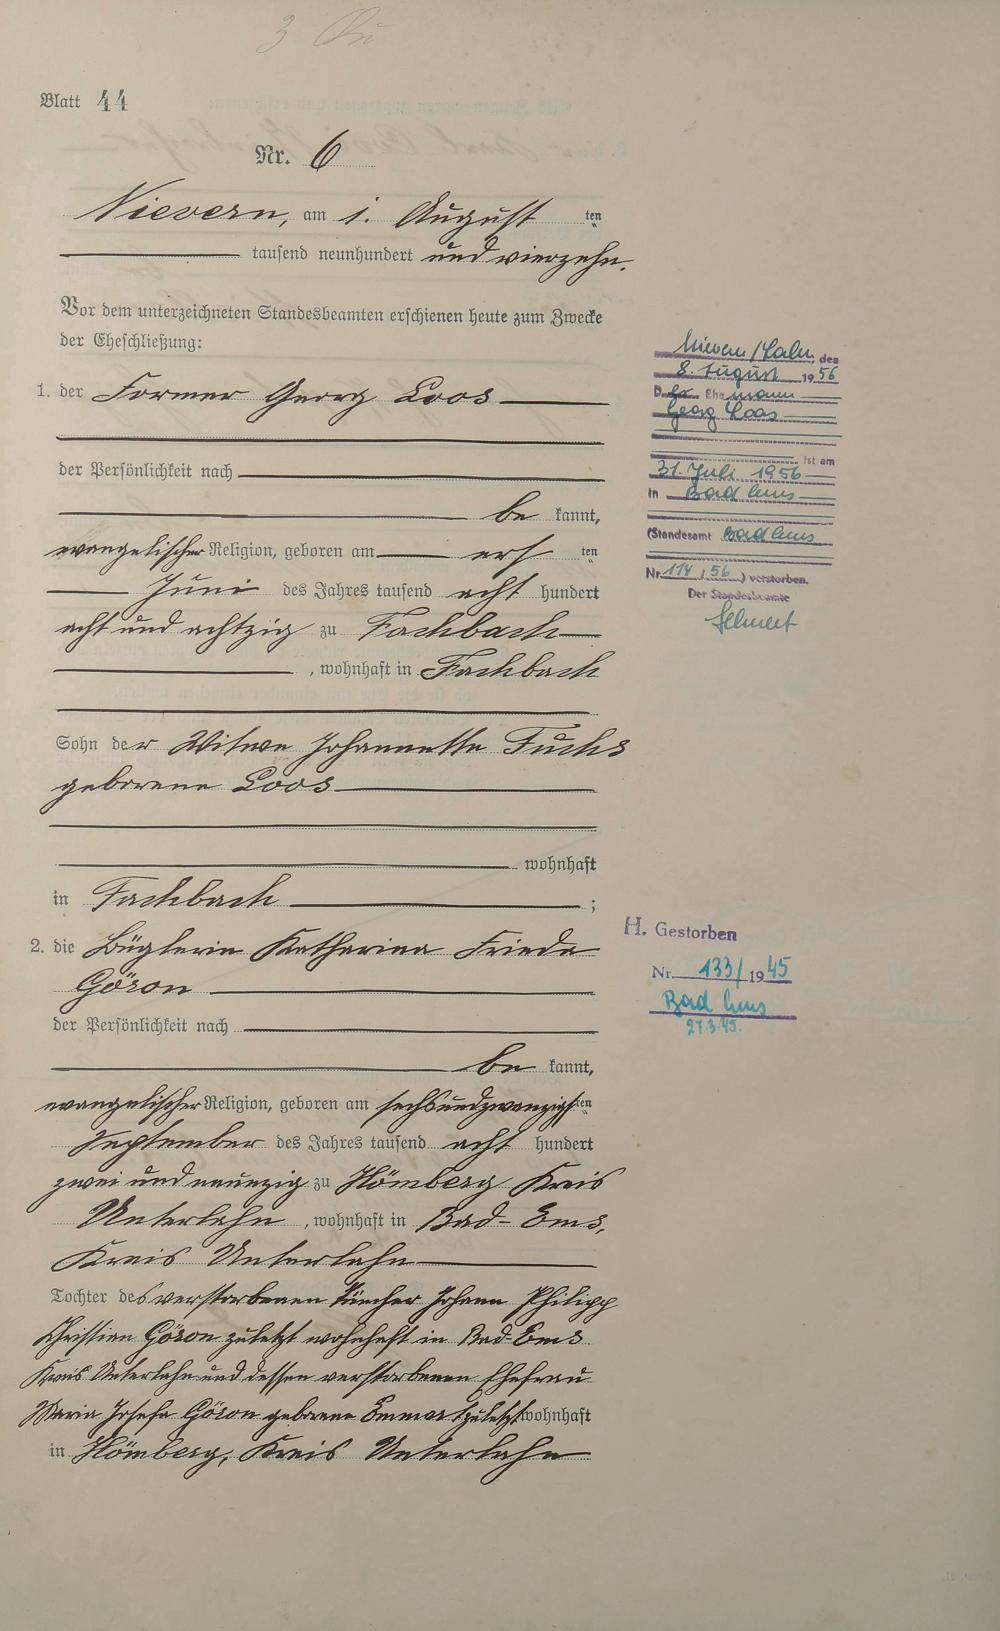 Blatt 44
Nr. 6
Nievern, am 1. August ten
tausend neunhundert und vierzehn.
Vor dem unterzeichneten Standesbeamten erschienen heute zum Zwecke
der Eheschließung:
1. der Former Georg Loos
der Persönlichkeit nach
be kannt,
evangelischer Religion, geboren am ers ten
Juni des Jahres tausend acht hundert
acht und achtzig zu Fachbach
, wohnhaft in Fachbach
Sohn der Witwe Johannette Fuchs
geborene Loos
wohnhaft
in Fachbach ;
2. die Büglerin Katharina Frieda
Göron
der Persönlichkeit nach
be kannt,
evangelischer Religion, geboren am sechsundzwanzigsten
September des Jahres tausend acht hundert
zwei und neunzig zu Hömberg Kreis
Unterlahn, wohnhaft in Bad-Ems,
Kreis Unterlahn
Tochter des verstorbenen Tüncher Johann Philipp
Christian Göron zuletzt wohnhaft in Bad-Ems
Kreis Unterlahn und dessen verstorbenen Ehefrau
Maria Josefa Göron geborene zuletzt wohnhaft
in Hömberg, Kreis Unterlahn
Nievern/Lahn, den
8. August 1956
D Ehemann
Georg Loos
ist am
31. Juli 1956
in Bad Ems
(Standesamt Bad Ems
Nr. 114/56) verstorben.
Der Standesbeamte
H. Gestorben
Nr. 133/1945
Bad Ems
27.3.45.